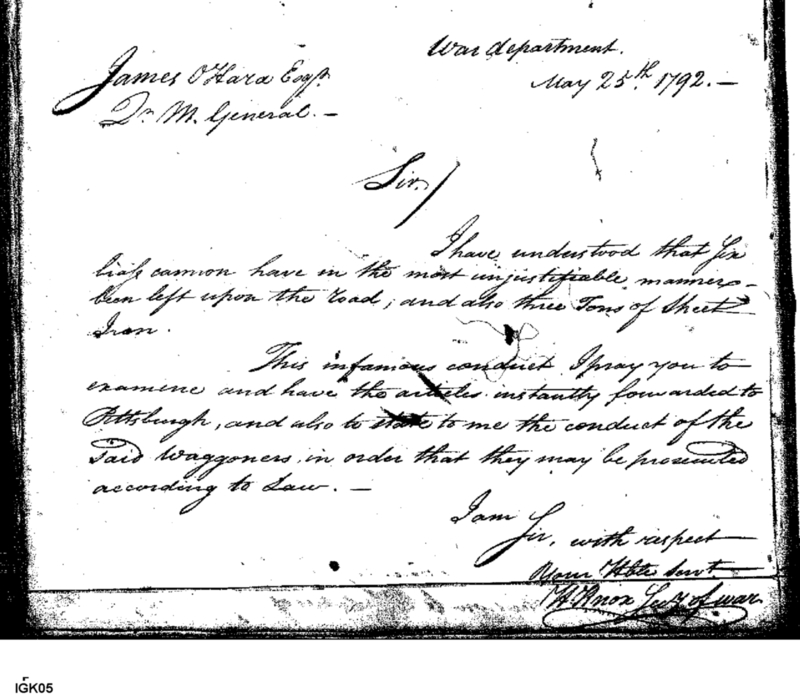 War department.
James OHara Esqr.
May 25th. 1792. —
Qr. M. General. —
Sir,
I have understood that Six
brass cannon have in the most unjustifiable manner
been left upon the road; and also three Tons of Sheet
Iron.
This infamous conduct I pray you to
examine and have the articles instantly forwarded to
Pittsburgh, and also to state to me the conduct of the
said waggoners in order that they may be prosecuted
according to Law. —
I am
Sir, with respect
Your Hble Servt.
H Knox Secy of war.
IGK05